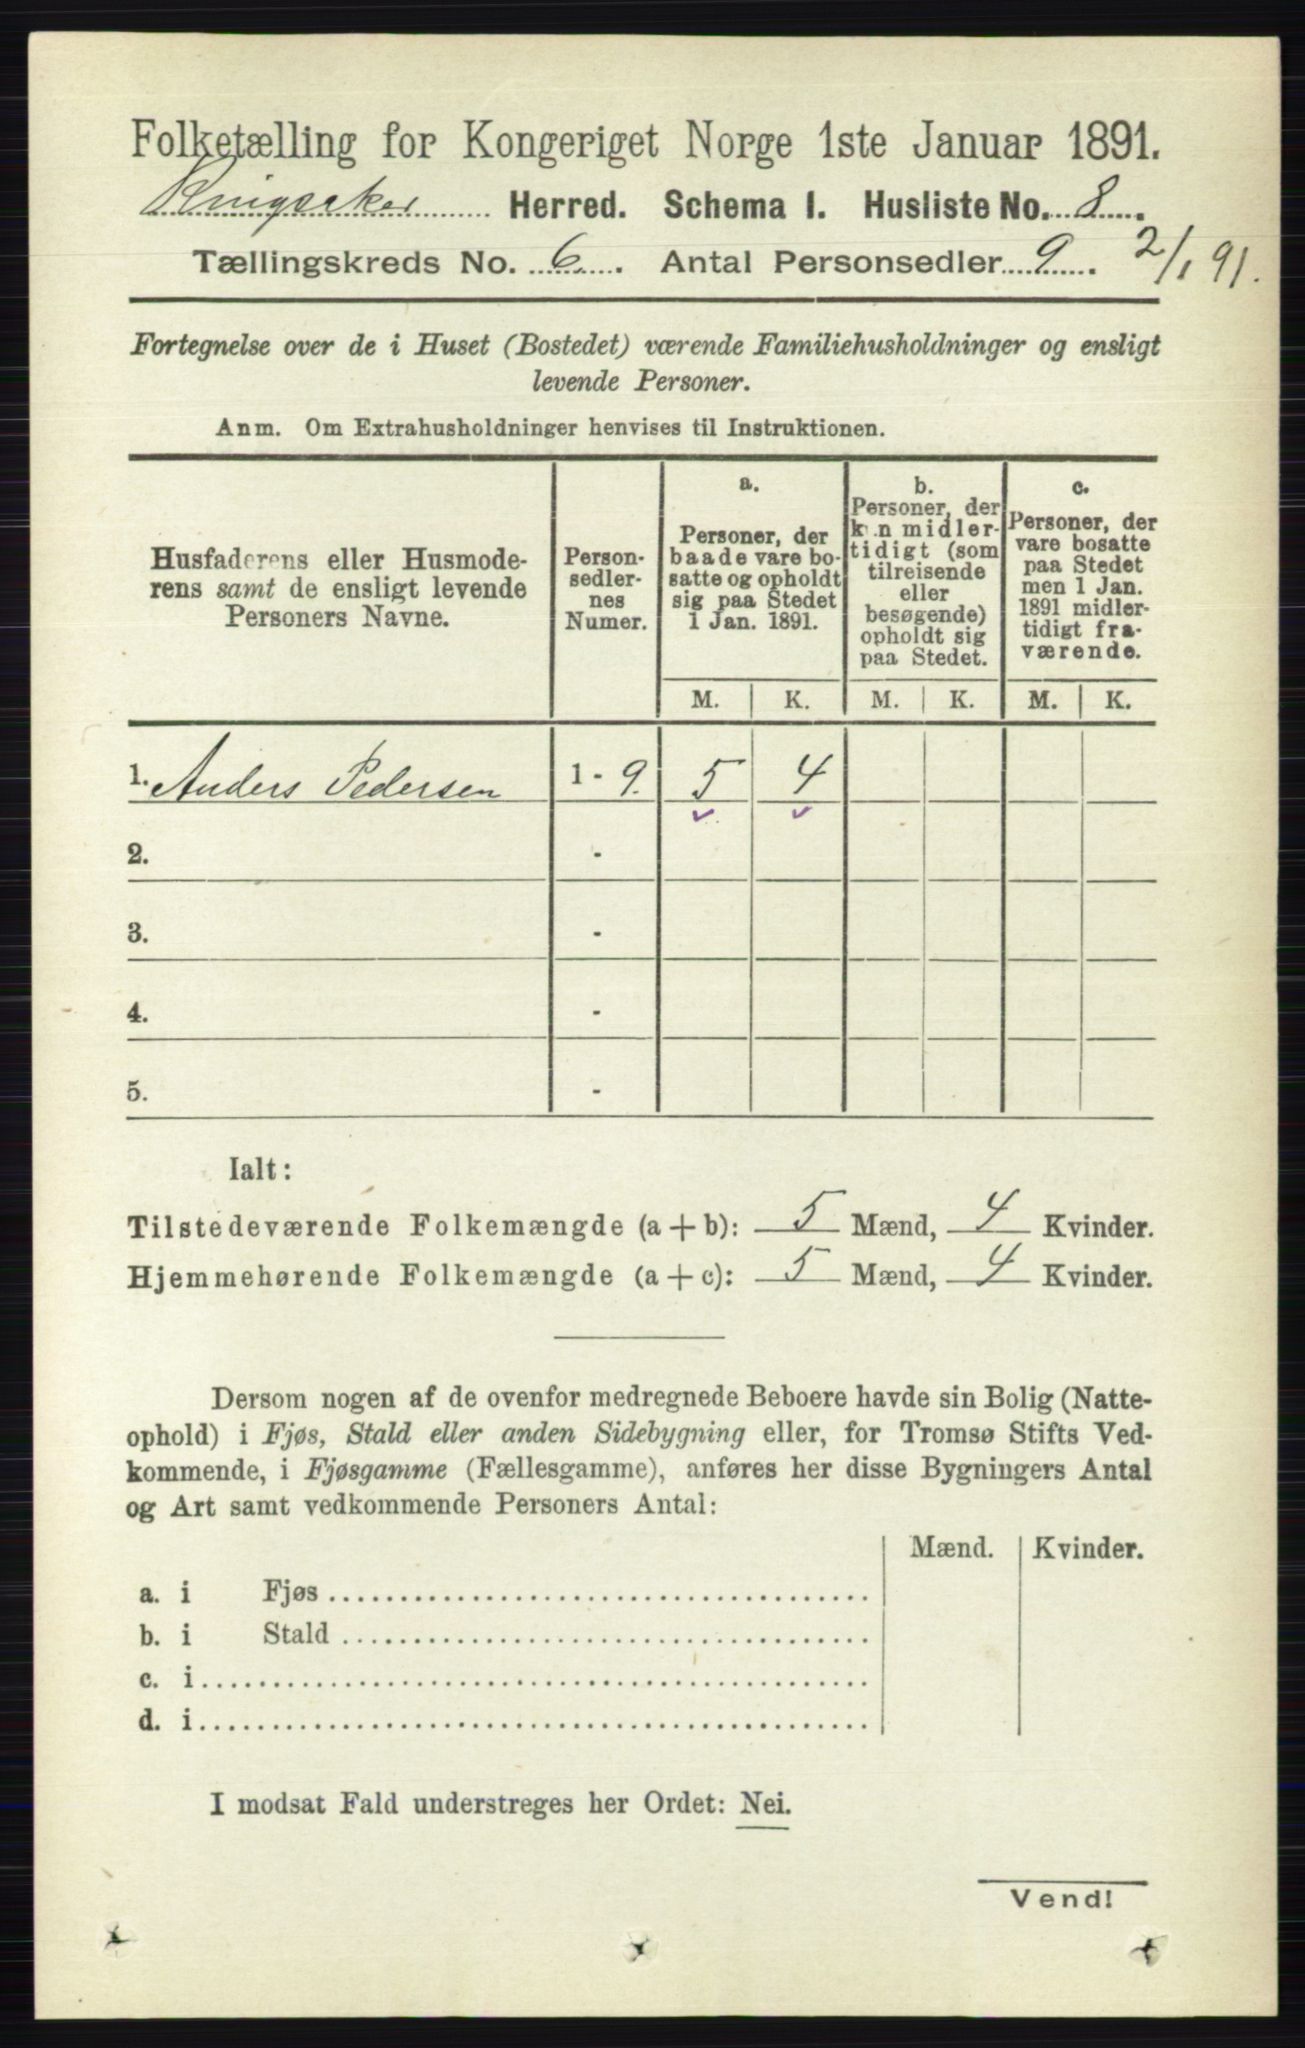 Folketælling for Kongeriget Norge 1ste Januar 1891.
Ringsaker Herred. Schema I. Husliste No. 8
Tællingskreds No. 6. Antal Personsedler 9. 2/1 91.
Fortegnelse over de i Huset (Bostedet) værende Familiehusholdninger og ensligt
levende Personer.
Anm. Om Extrahusholdninger henvises til Instruktionen.
Husfaderens eller Husmode-
rens samt de ensligt levende
Personers Navne.
Person-
sedler-
nes
Numer.
a.
Personer, der
baade vare bo-
satte og opholdt
sig paa Stedet
1 Jan. 1891.
b.
Personer, der
kun midler-
tidigt (som
tilreisende
eller
besøgende)
opholdt sig
paa Stedet.
c.
Personer, der
vare bosatte
paa Stedet
men 1 Jan.
1891 midler-
tidigt fra-
værende.
M. K. M. K. M. K.
1. Anders Pedersen 1 - 9. 5 4
2. -
3. -
4. -
5. -
Ialt:
Tilstedeværende Folkemængde (a + b): 5 Mænd, 4 Kvinder.
Hjemmehørende Folkemængde (a + c): 5 Mænd, 4 Kvinder.
Dersom nogen af de ovenfor medregnede Beboere havde sin Bolig (Natte-
ophold) i Fjøs, Stald eller anden Sidebygning eller, for Tromsø Stifts Ved-
kommende, i Fjøsgamme (Fællesgamme), anføres her disse Bygningers Antal
og Art samt vedkommende Personers Antal:
Mænd. Kvinder.
a. i Fjøs
b. i Stald
c. i
d. i
I modsat Fald understreges her Ordet: Nei.
Vend!